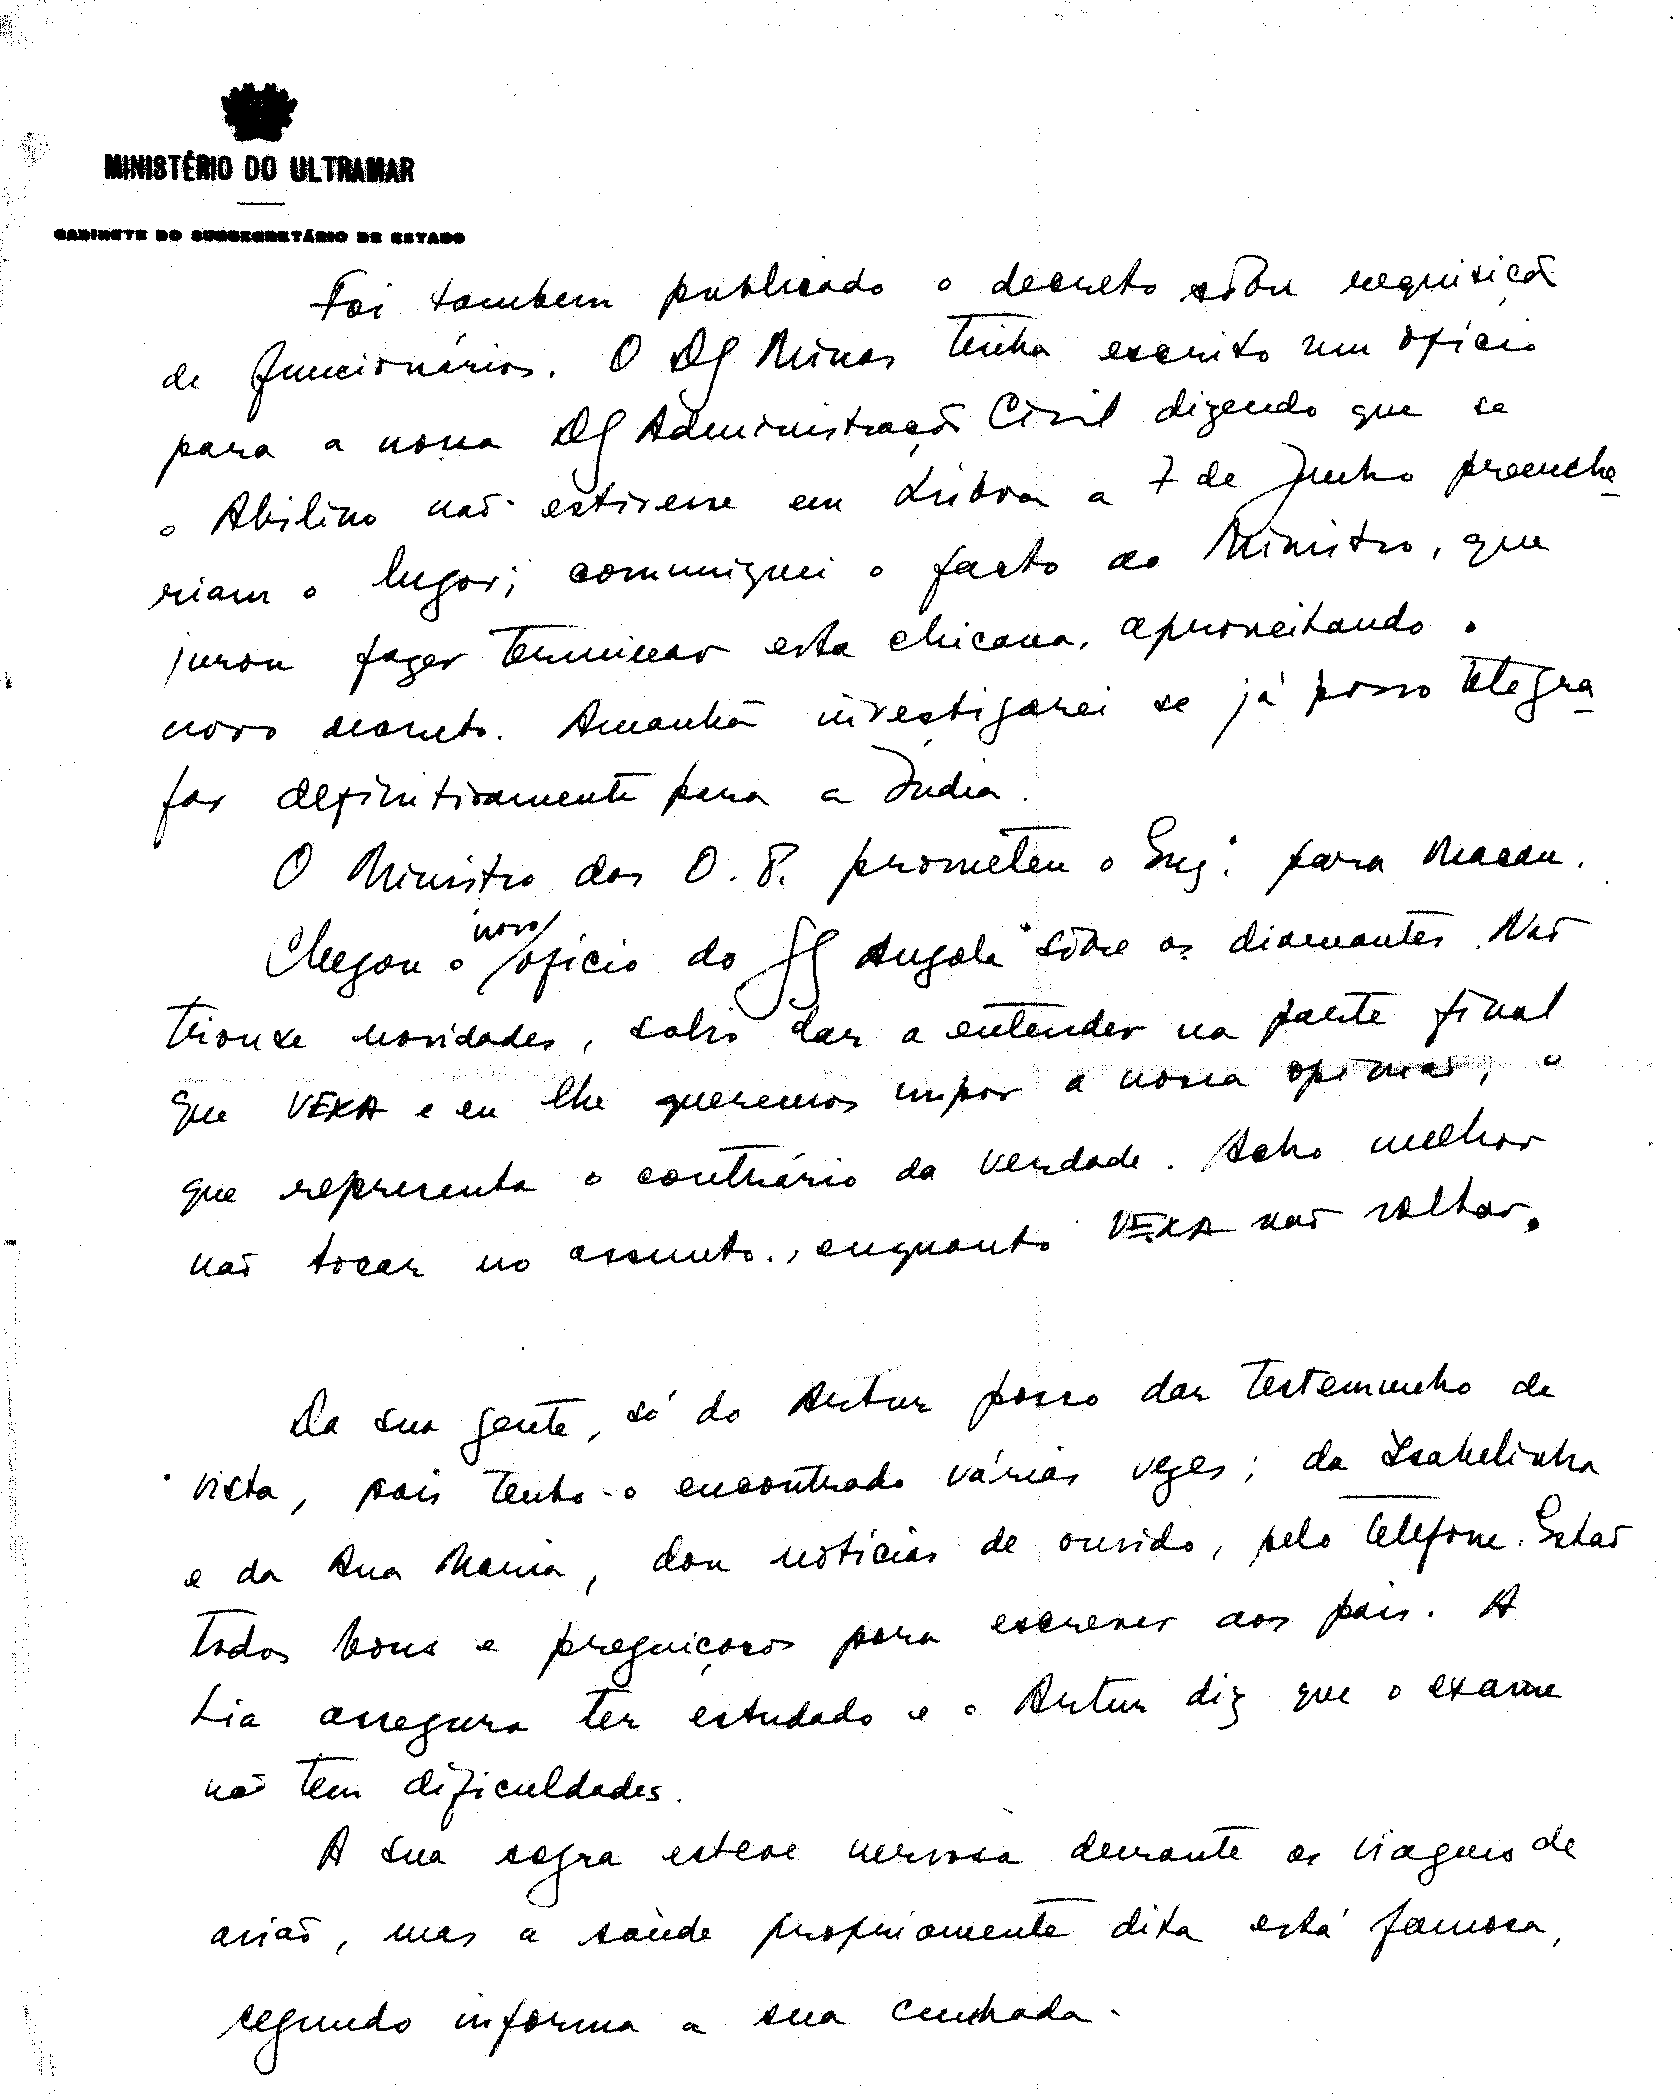 MINISTÉRIO DO ULTRAMAR
GABINETE DO SUBSECRETÁRIO DE ESTADO
Foi tambem publicado o decreto sôbre requisição
de funcionários. O DG Minas tinha escrito um ofício
para a nossa DG Administração Civil dizendo que se
o Abilino não estivesse em Lisboa a 7 de Junho preenche-
riam o lugar; comuniquei o facto ao Ministro, que
jurou fazer terminar esta chicana, aproveitando o
novo decreto. Amanhã investigarei se já posso telegra-
far definitivamente para a Índia.
O Ministro das O.P. prometeu o Eng.º para Macau.
novo
Chegou o ofício do GG Angola sôbre os diamantes. Não
trouxe novidades, salvo dar a entender na parte final
que VEXA e eu lhe queremos impor a nossa opinião, o
que representa o contrário da verdade. Acho melhor
não tocar no assunto, enquanto VEXA não voltar.
Da sua gente, só do Artur posso dar testemunho de
vista, pois tenho-o encontrado várias vezes; da Isabelinha
e da Ana Maria, dou notícias de ouvido, pelo telefone. Estão
todos bons e preguiçosos para escrever aos pais. A
Lia assegura ter estudado e o Artur diz que o exame
não tem dificuldades.
A sua sogra esteve nervosa durante as viagens de
avião, mas a saúde propriamente dita está famosa,
segundo informa a sua cunhada.